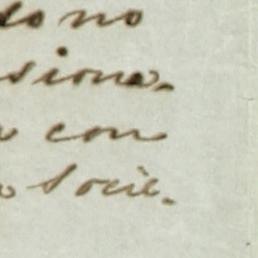 do no
sione.
con
Socie.